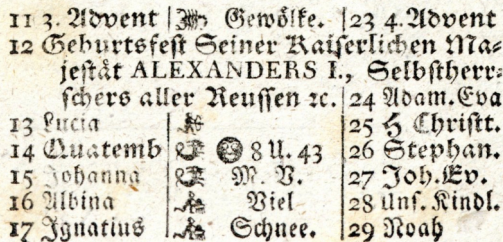 11 3. Advent Gewölke. 23 4. Advent
12 Geburtsfest Seiner Kaiserlichen Ma-
jestät ALEXANDERS I., Selbstherr-
schers aller Reussen ꝛc. 24 Adam. Eva
13 Lucia 25 H Christt.
14 Quatemb 8 U. 43 26 Stephan.
15 Johanna M. V. 27 Joh. Ev.
16 Albina Viel 28 Uns. Kindl.
17 Ignatius Schnee. 29 Noah